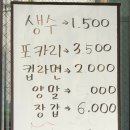 생수→1.500
포카리→3.500
컵라면→2.000
양말→000
장갑→6.000